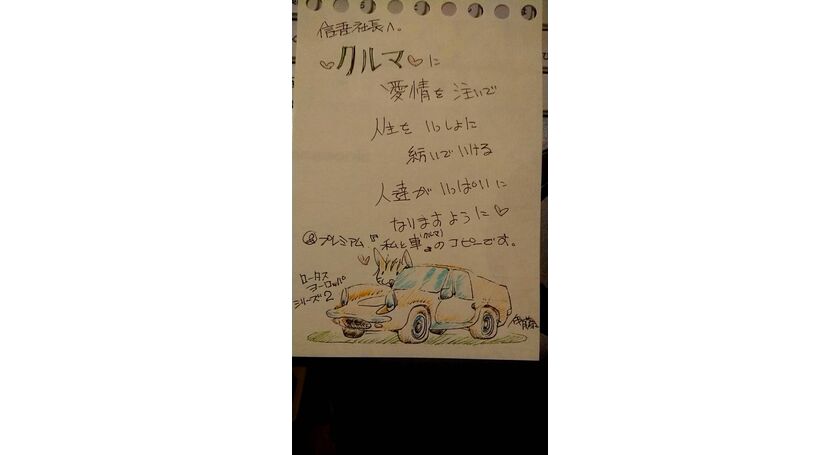 信吾社長へ。
♡クルマ♡に
愛情を注いで
人生をいっしょに
紡いでいける
人達がいっぱいに
なりますように♡
プレミアム『私と車(クルマ)』のコピーです。
ロータス
ヨーロッパ
シリーズ2